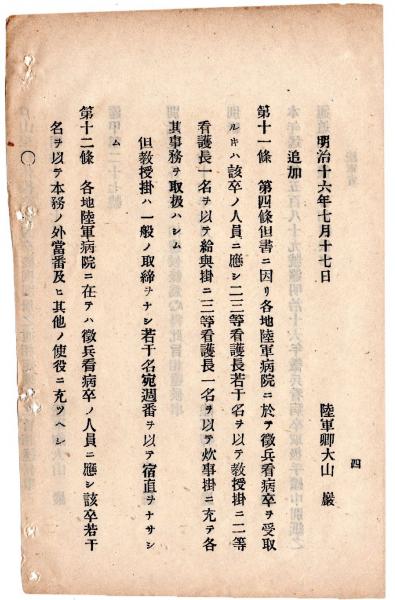 四
明治十六年七月十七日
陸軍卿大山 巖
追加
第十一條 第四條但書ニ因リ各地陸軍病院ニ於テ徵兵看病卒ヲ受取
ルキハ該卒ノ人員ニ應シ二三等看護長若干名ヲ以テ教授掛ニ二等
看護長一名ヲ以テ給與掛ニ三等看護長一名ヲ以テ炊事掛ニ充テ各
其事務ヲ取扱ハシム
但教授掛ハ一般ノ取締ヲナシ若干名宛週番ヲ以テ宿直ヲナサシ
ム
第十二條 各地陸軍病院ニ在テハ徵兵看病卒ノ人員ニ應シ該卒若干
名ヲ以テ本務ノ外當番及ヒ其他ノ使役ニ充ツヘシ
〇